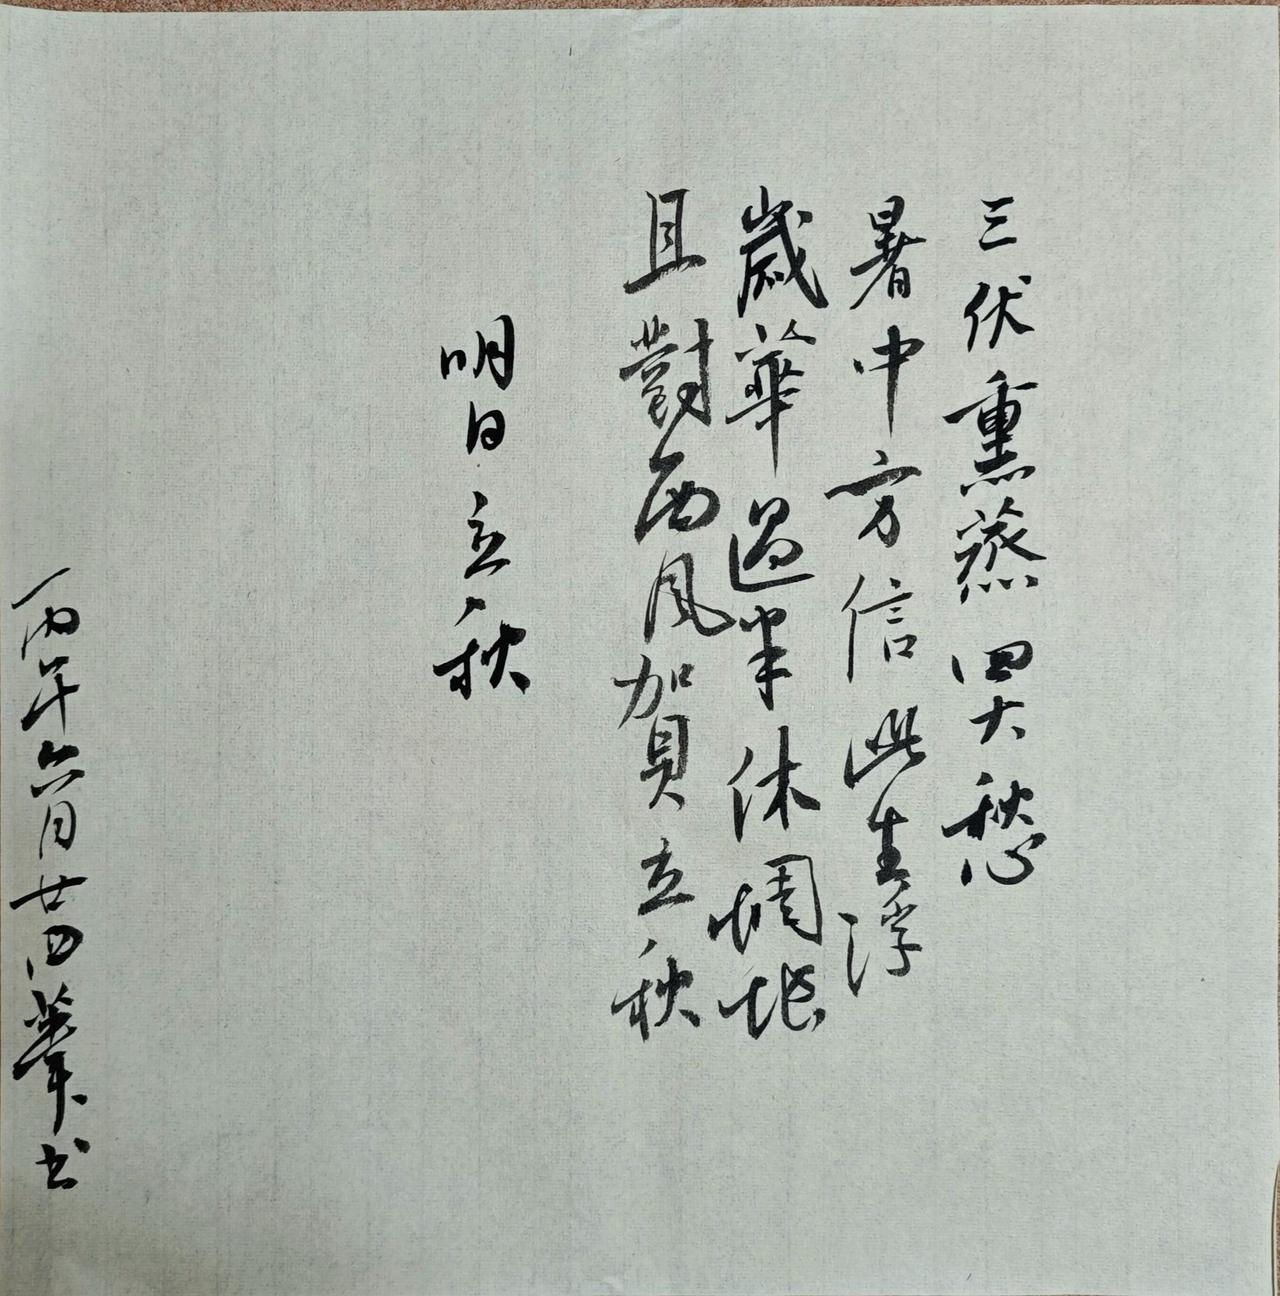 三伏熏蒸四大愁
暑中方信此生浮
歲華過半休惆悵
且對西風加貝立秋
明日立秋
丙午六月廿四華书